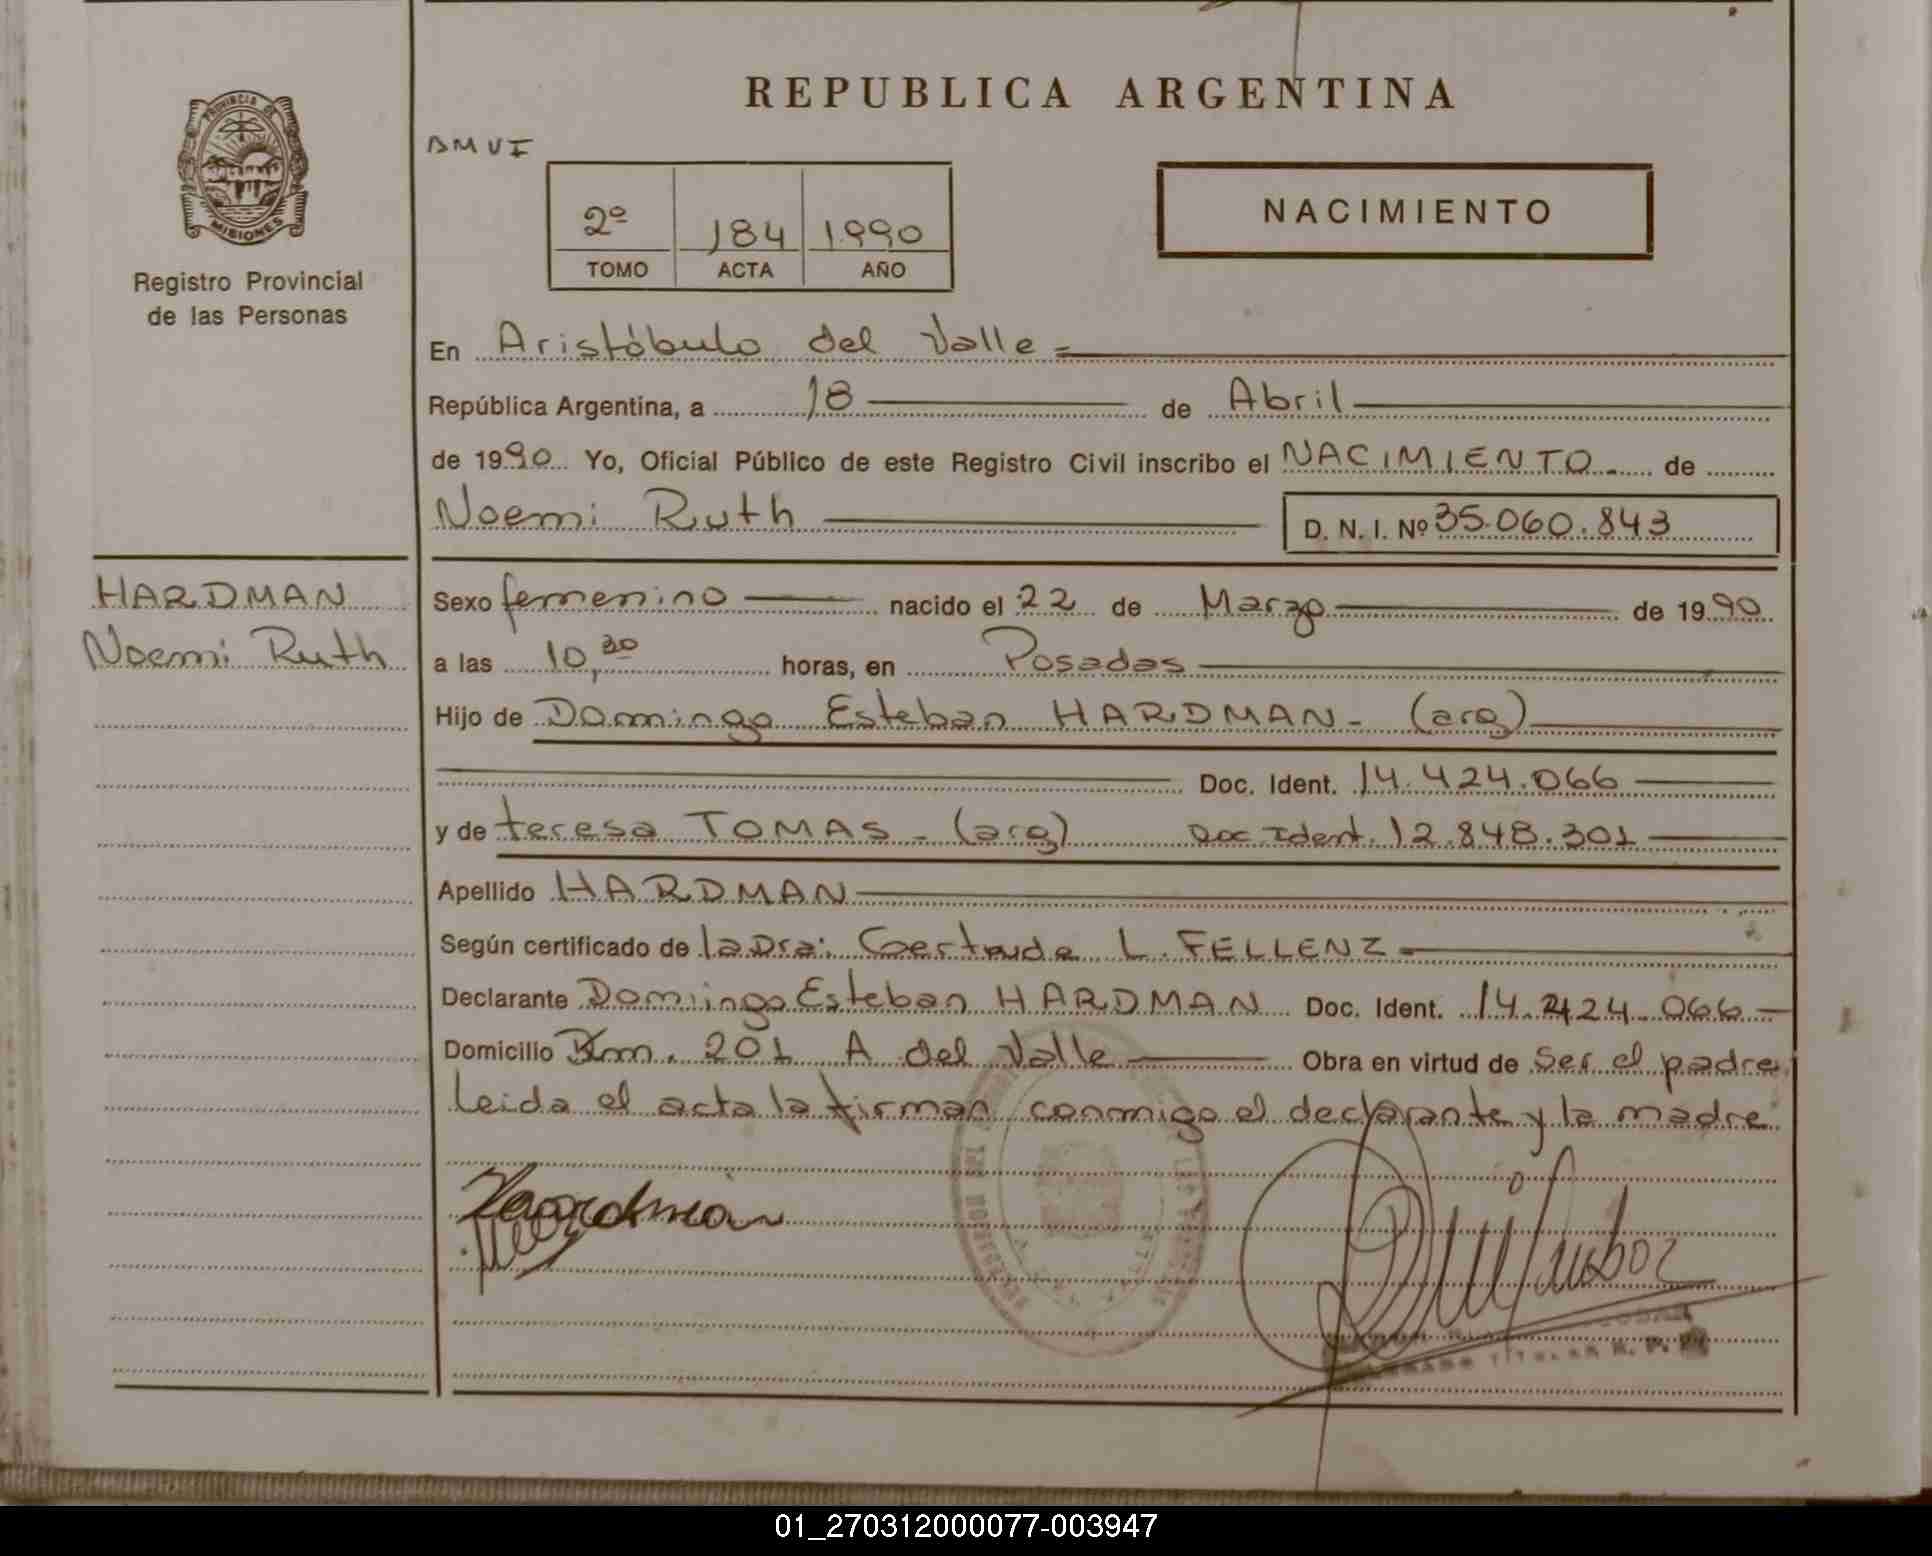 REPUBLICA ARGENTINA
PROVINCIA DE
MISIONES
Registro Provincial
de las Personas
BMVI
2º 184 1990
TOMO ACTA AÑO
NACIMIENTO
En Aristóbulo del Valle =
República Argentina, a 18 de Abril
de 1990 Yo, Oficial Público de este Registro Civil inscribo el NACIMIENTO. de
Noemi Ruth D. N. I. Nº 35.060.843
HARDMAN
Noemi Ruth
Sexo femenino nacido el 22 de Marzo de 1990
a las 10,30 horas, en Posadas
Hijo de Domingo Esteban HARDMAN - (arg)
Doc. Ident. 14.424.066
y de teresa TOMAS - (arg) Doc. Ident. 12.848.301
Apellido HARDMAN
Según certificado de la Dra: Gertrude L. FELLENZ
Declarante Domingo Esteban HARDMAN Doc. Ident. 14.424.066
Domicilio Km. 201 A del Valle Obra en virtud de ser el padre
leida el acta la firman conmigo el declarante y la madre
Hardman
TITULAR R. P.
01_270312000077-003947